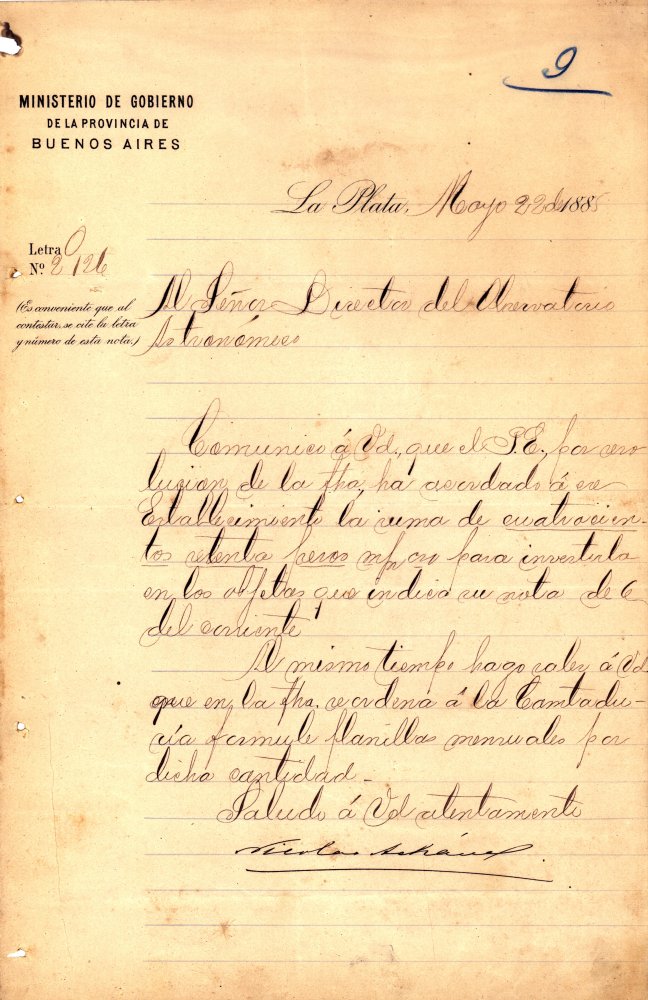 9
MINISTERIO DE GOBIERNO
DE LA PROVINCIA DE
BUENOS AIRES
La Plata, Mayo 22 de 1885
Letra O
Nº 2 126
(Es conveniente que al
contestar, se cite la letra
y número de esta nota.)
Al Señor Director del Observatorio
Astronómico
Comunico á Vd., que el P.E. por reso
lucion de la fha, ha acordado á ese
Establecimiento la suma de cuatrocien-
tos setenta pesos m/n para invertirla
en los objetos que indica su nota de 6
del corriente
Al mismo tiempo hago saber á Vd.
que en la fha. se ordena á la Contadu-
ría formule planillas mensuales por
dicha cantidad_
Saludo á Vd atentamente
Nicolas Achával